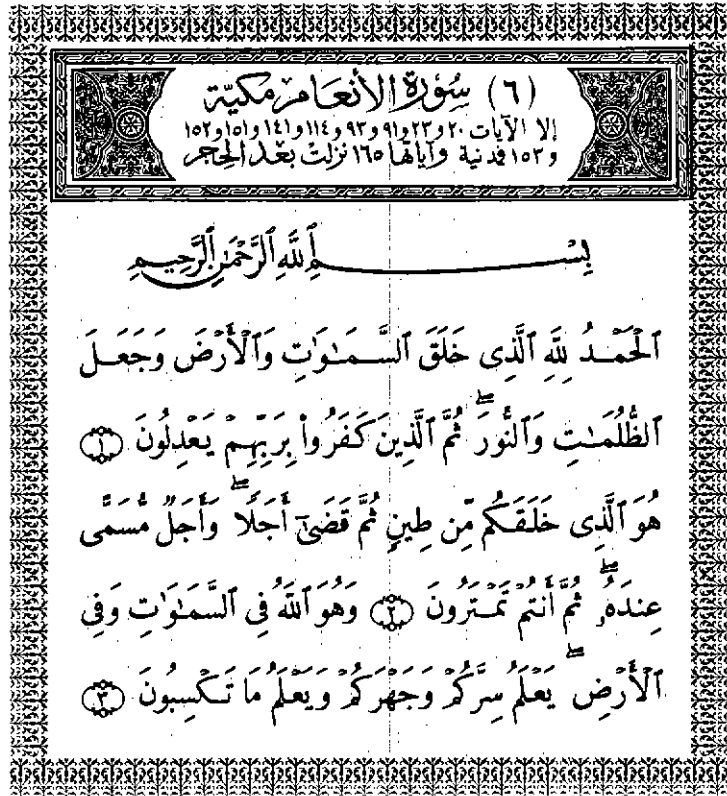 (٦) سُورَة الأنعَام مكيّة
إلا الآيات ٢٠ و٢٣ و٩١ و٩٣ و١١٤ و١٤١ و١٥١ و١٥٢
و ١٥٣ فمدنية وآياتها ١٦٥ نزلت بعد الحجر
بِسْمِ ٱللَّهِ ٱلرَّحْمَٰنِ ٱلرَّحِيمِ
ٱلْحَمْدُ لِلَّهِ ٱلَّذِى خَلَقَ ٱلسَّمَٰوَٰتِ وَٱلْأَرْضَ وَجَعَلَ
ٱلظُّلُمَٰتِ وَٱلنُّورَۖ ثُمَّ ٱلَّذِينَ كَفَرُوا۟ بِرَبِّهِمْ يَعْدِلُونَ ١
هُوَ ٱلَّذِى خَلَقَكُم مِّن طِينٍ ثُمَّ قَضَىٰٓ أَجَلًاۖ وَأَجَلٌ مُّسَمًّى
عِندَهُۥۖ ثُمَّ أَنتُمْ تَمْتَرُونَ ٢ وَهُوَ ٱللَّهُ فِى ٱلسَّمَٰوَٰتِ وَفِى
ٱلْأَرْضِۖ يَعْلَمُ سِرَّكُمْ وَجَهْرَكُمْ وَيَعْلَمُ مَا تَكْسِبُونَ ٣